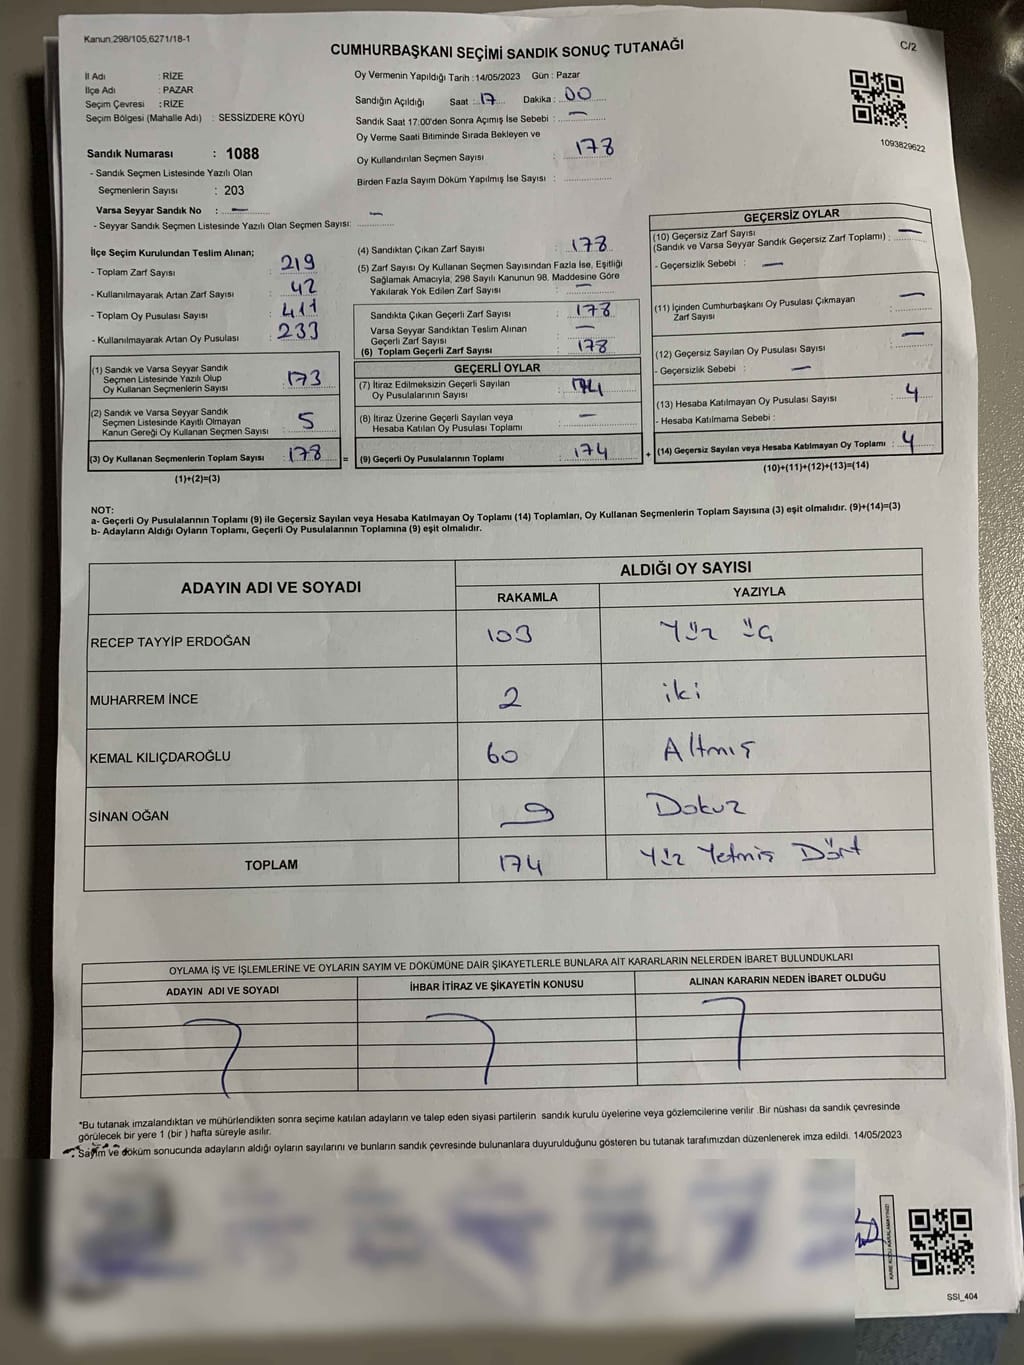 Kanun;298/105,6271/18-1
CUMHURBAŞKANI SEÇİMİ SANDIK SONUÇ TUTANAĞI
C/2
İl Adı : RİZE
İlçe Adı : PAZAR
Seçim Çevresi : RİZE
Seçim Bölgesi (Mahalle Adı) : SESSİZDERE KÖYÜ
Sandık Numarası : 1088
- Sandık Seçmen Listesinde Yazılı Olan
Seçmenlerin Sayısı : 203
Varsa Seyyar Sandık No : —
- Seyyar Sandık Seçmen Listesinde Yazılı Olan Seçmen Sayısı: —
Oy Vermenin Yapıldığı Tarih : 14/05/2023 Gün : Pazar
Sandığın Açıldığı Saat : 17 Dakika : 00
Sandık Saat 17:00'den Sonra Açımış İse Sebebi : —
Oy Verme Saati Bitiminde Sırada Bekleyen ve
Oy Kullandırılan Seçmen Sayısı : 178
Birden Fazla Sayım Döküm Yapılmış İse Sayısı :
1093829622
İlçe Seçim Kurulundan Teslim Alınan;
- Toplam Zarf Sayısı : 219
- Kullanılmayarak Artan Zarf Sayısı : 42
- Toplam Oy Pusulası Sayısı : 411
- Kullanılmayarak Artan Oy Pusulası : 233
(1) Sandık ve Varsa Seyyar Sandık
Seçmen Listesinde Yazılı Olup
Oy Kullanan Seçmenlerin Sayısı : 173
(2) Sandık ve Varsa Seyyar Sandık
Seçmen Listesinde Kayıtlı Olmayan
Kanun Gereği Oy Kullanan Seçmen Sayısı : 5
(3) Oy Kullanan Seçmenlerin Toplam Sayısı : 178 =
(1)+(2)=(3)
(4) Sandıktan Çıkan Zarf Sayısı : 178
(5) Zarf Sayısı Oy Kullanan Seçmen Sayısından Fazla İse, Eşitliği
Sağlamak Amacıyla, 298 Sayılı Kanunun 98. Maddesine Göre
Yakılarak Yok Edilen Zarf Sayısı : —
Sandıkta Çıkan Geçerli Zarf Sayısı : 178
Varsa Seyyar Sandıktan Teslim Alınan
Geçerli Zarf Sayısı : —
(6) Toplam Geçerli Zarf Sayısı : 178
GEÇERLİ OYLAR
(7) İtiraz Edilmeksizin Geçerli Sayılan
Oy Pusulalarının Sayısı : 174
(8) İtiraz Üzerine Geçerli Sayılan veya
Hesaba Katılan Oy Pusulası Toplamı : —
(9) Geçerli Oy Pusulalarının Toplamı : 174 +
GEÇERSİZ OYLAR
(10) Geçersiz Zarf Sayısı
(Sandık ve Varsa Seyyar Sandık Geçersiz Zarf Toplamı) : —
- Geçersizlik Sebebi : —
(11) İçinden Cumhurbaşkanı Oy Pusulası Çıkmayan
Zarf Sayısı : —
(12) Geçersiz Sayılan Oy Pusulası Sayısı : —
- Geçersizlik Sebebi : —
(13) Hesaba Katılmayan Oy Pusulası Sayısı : 4
- Hesaba Katılmama Sebebi :
(14) Geçersiz Sayılan veya Hesaba Katılmayan Oy Toplamı : 4
(10)+(11)+(12)+(13)=(14)
NOT:
a- Geçerli Oy Pusulalarının Toplamı (9) ile Geçersiz Sayılan veya Hesaba Katılmayan Oy Toplamı (14) Toplamları, Oy Kullanan Seçmenlerin Toplam Sayısına (3) eşit olmalıdır. (9)+(14)=(3)
b- Adayların Aldığı Oyların Toplamı, Geçerli Oy Pusulalarının Toplamına (9) eşit olmalıdır.
ADAYIN ADI VE SOYADI
ALDIĞI OY SAYISI
RAKAMLA YAZIYLA
RECEP TAYYİP ERDOĞAN 103 Yüz üç
MUHARREM İNCE 2 iki
KEMAL KILIÇDAROĞLU 60 Altmış
SİNAN OĞAN 9 Dokuz
TOPLAM 174 Yüz Yetmiş Dört
OYLAMA İŞ VE İŞLEMLERİNE VE OYLARIN SAYIM VE DÖKÜMÜNE DAİR ŞİKAYETLERLE BUNLARA AİT KARARLARIN NELERDEN İBARET BULUNDUKLARI
ADAYIN ADI VE SOYADI İHBAR İTİRAZ VE ŞİKAYETİN KONUSU ALINAN KARARIN NEDEN İBARET OLDUĞU
*Bu tutanak imzalandıktan ve mühürlendikten sonra seçime katılan adayların ve talep eden siyasi partilerin sandık kurulu üyelerine veya gözlemcilerine verilir .Bir nüshası da sandık çevresinde
görülecek bir yere 1 (bir ) hafta süreyle asılır.
Sayım ve döküm sonucunda adayların aldığı oyların sayılarını ve bunların sandık çevresinde bulunanlara duyurulduğunu gösteren bu tutanak tarafımızdan düzenlenerek imza edildi. 14/05/2023
KARE KODU KARALAMAYINIZ!
SSI_404